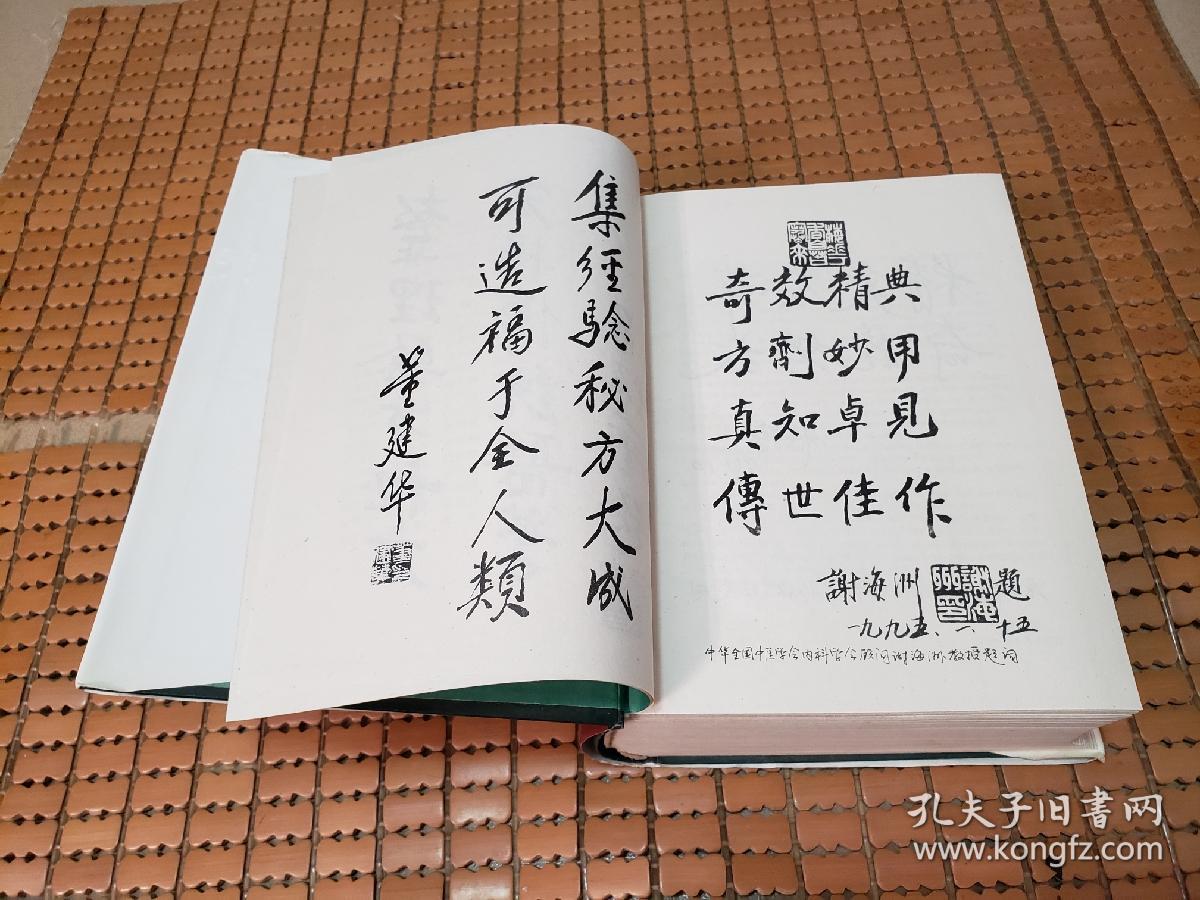 集经騐秘方大成
可造福于全人類
董建华
奇效精典
方劑妙用
真知卓見
傳世佳作
謝海洲 題
一九九五、 十五
中华全国中医学会内科学会顾问谢海洲教授题词
孔夫子旧書网
www.kongfz.com